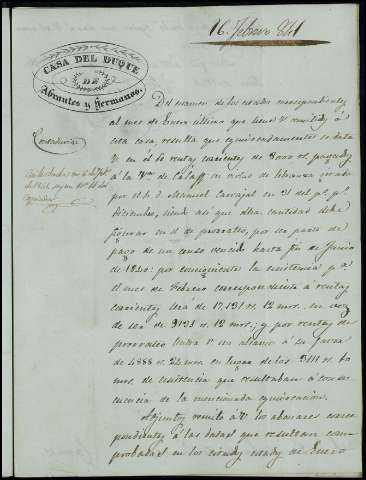 16. Febrero 841
CASA DEL DUQUE
DE
Abrantes y hermanos.
Contaduria
Del examen de los estados correspondientes
al mes de Enero último que tiene V. remitido á
esta casa, resulta que equivocadamente se data
V. en el de rentas corrientes de 8000 rs. pagados
á la V.ª de Calaff en virtud de libranza girada
por el S. D. Manuel Carvajal en 31 del p.º p.º
diciembre, siendo asi que dicha cantidad debe
figurar en el de atrasados, por ser parte de
pago de un censo vencido hasta fin de Junio
de 1840: por consiguiente la existencia p.ª
el mes de Febrero correspondiente á rentas
corrientes será de 17,131 rs. 12 mrs. en vez
de ser de 9131 rs. 12 mrs.; y por rentas de
atrasados contra V. un alcance á su favor
de 4888 rs. 24 mrs. en lugar de los 3111 rs. 10
mrs. de existencia que resultaban á con se
cuencia de la mencionada equivocacion.
Adjuntos remito á V. los abonarés corres
pondientes á las datas que resultan com
probadas en los citados estados de Enero